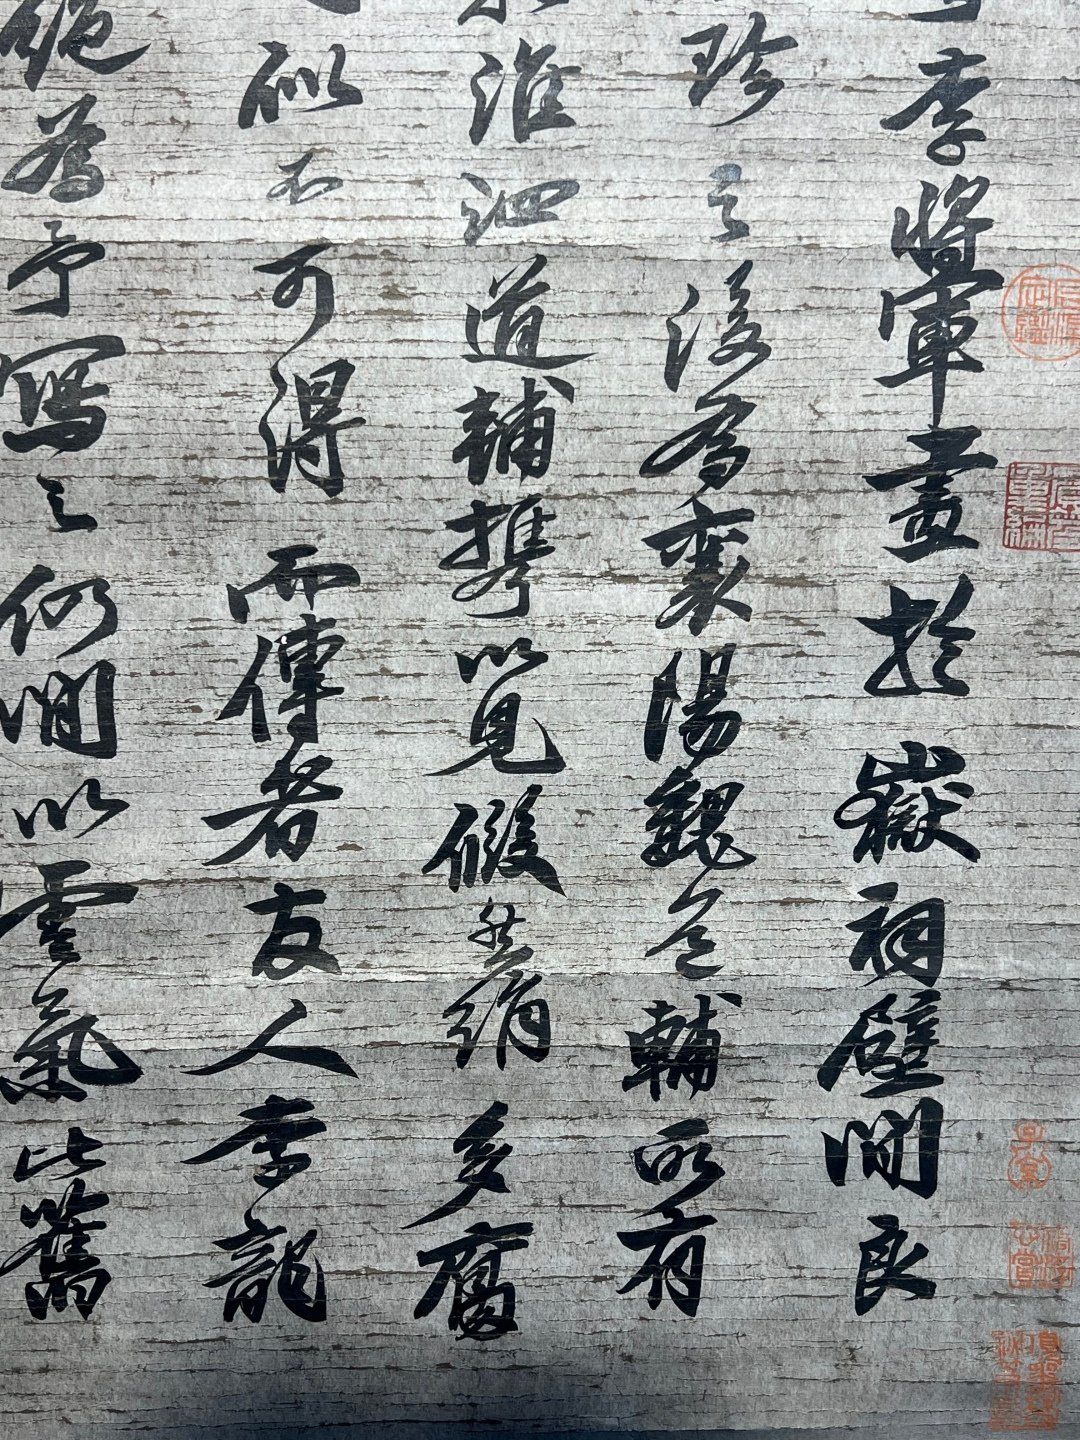 李將軍畫於嶽祠壁間良
珍之後為襄陽魏令輔所有
淮泗道輔攜以見假然絹多腐
似不可得而傳者友人李龍
為予寫之仍間以雲氣此舊